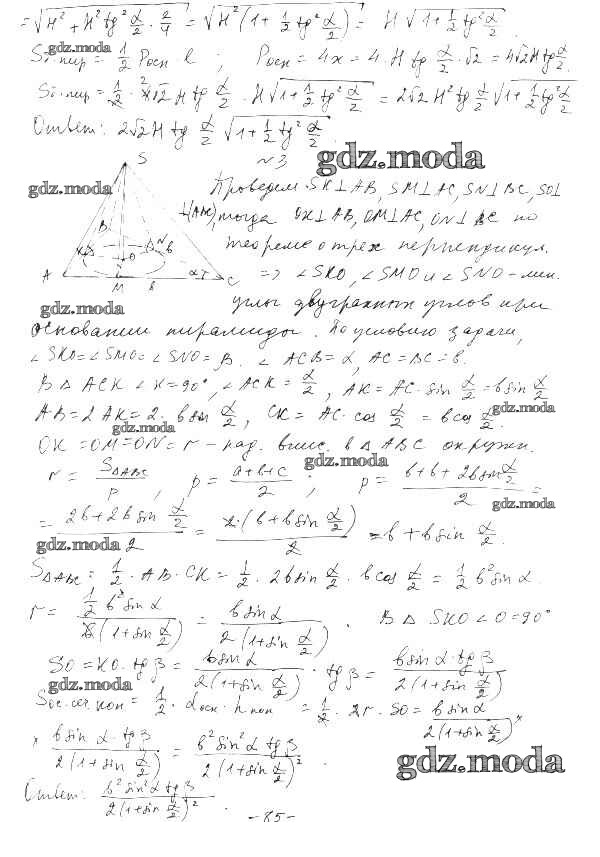 = √(H² + H² tg² α/2 · 2/4) = √(H² (1 + 1/2 tg² α/2)) = H √(1 + 1/2 tg² α/2)
Sδ.пир = 1/2 Pосн · l ; Pосн = 4x = 4 · H tg α/2 · √2 = 4√2 H tg α/2.
gdz.moda
√(1 + 1/2 tg² α/2) = 2√2 H² tg α/2 √(1 + 1/2 tg² α/2)
Ответ: 2√2 H tg α/2 √(1 + 1/2 tg² α/2)
№3
gdz.moda
S
Проведем SK⊥AB, SM⊥AC, SN⊥BC, SO⊥
gdz.moda
(ABC), тогда OK⊥AB, OM⊥AC, ON⊥BC по
B
N
теореме о трёх перпендикул.
K
O
A
M
C
=> ∠SKO, ∠SMO и ∠SNO - лин.
gdz.moda
углы двугранных углов при
основании пирамиды. По условию задачи,
∠SKO = ∠SMO = ∠SNO = β. ∠ACB = α, AC = BC = b.
В Δ ACK ∠K = 90°, ∠ACK = α/2, AK = AC · sin α/2 = b sin α/2
AB = 2 AK = 2 · b sin α/2, CK = AC · cos α/2 = b cos α/2.
gdz.moda
gdz.moda
OK = OM = ON = r - рад. впис. в Δ ABC окружн.
gdz.moda
r = SΔABC / p, p = (a+b+c)/2 ; p = (b + b + 2b sin α/2)/2 =
gdz.moda
= (2b + 2b sin α/2)/2 = 2·(b + b sin α/2)/2 = b + b sin α/2.
gdz.moda
SΔABC = 1/2 · AB · CK = 1/2 · 2b sin α/2 · b cos α/2 = 1/2 b² sin α.
r = (1/2 b² sin α)/(b(1 + sin α/2)) = b sin α/(2(1 + sin α/2)). В Δ SKO ∠O = 90°
SO = KO · tg β = b sin α/(2(1 + sin α/2)) · tg β = b sin α · tg β/(2(1 + sin α/2))
gdz.moda
Sос.сеч кон = 1/2 · dосн · hкон = 1/2 · 2r · SO = b sin α/(2(1 + sin α/2)) ×
× b sin α · tg β/(2(1 + sin α/2)) = b² sin² α tg β/(2(1 + sin α/2)²
gdz.moda
Ответ: b² sin² α tg β/(2(1 + sin α/2)²
- 75 -